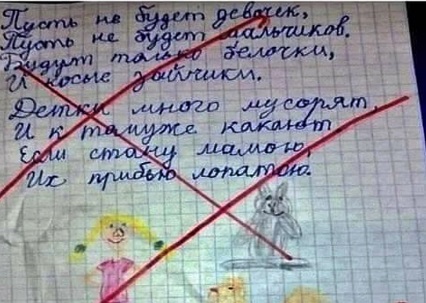 Пусть не будет девочек,
Пусть не будет мальчиков.
Будут только белочки,
И косые зайчики.
Детки много мусорят,
И к томуже какают.
Если стану мамою,
Их прибью лопатою.